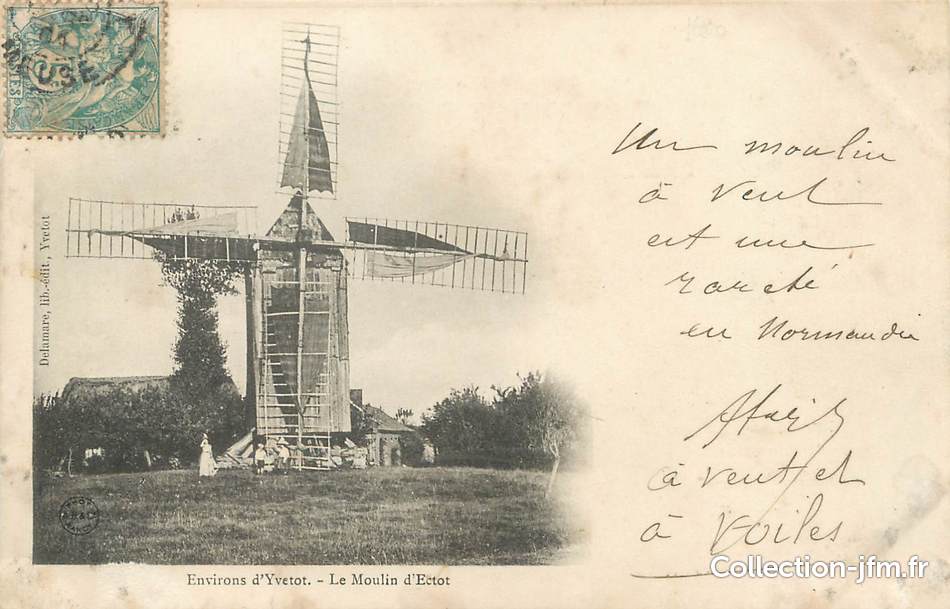 Delamare, lib.-édit, Yvetot
Un moulin
à vent
est une
rareté
en Normandie
à vent et
à voiles
Environs d'Yvetot. - Le Moulin d'Ectot
Collection-jfm.fr